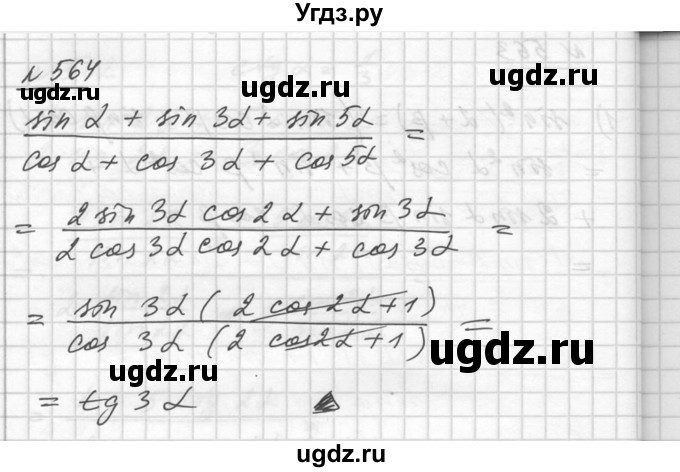 Угдз.ру
№ 564
ugdz.ru ugdz.ru
sin α + sin 3α + sin 5α
cos α + cos 3α + cos 5α =
= 2 sin 3α cos 2α + sin 3α
2 cos 3α cos 2α + cos 3α =
= sin 3α (2 cos 2α + 1)
cos 3α (2 cos 2α + 1) =
ugdz.ru ugdz.ru
= tg 3α
ugdz.ru
ugdz.ru